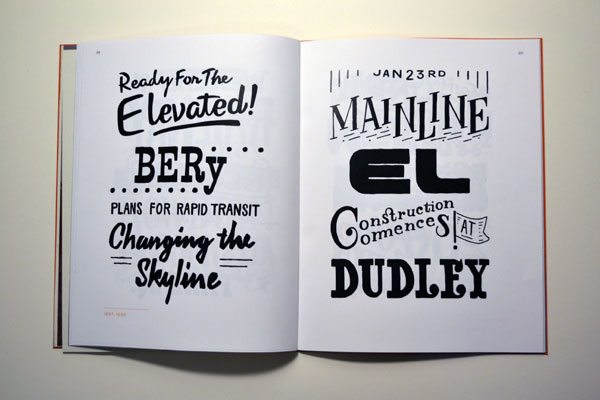 Ready For The
Elevated!
BERy
PLANS FOR RAPID TRANSIT
Changing the
Skyline
JAN 23RD
MAINLINE
EL
Construction
Commences! AT
DUDLEY